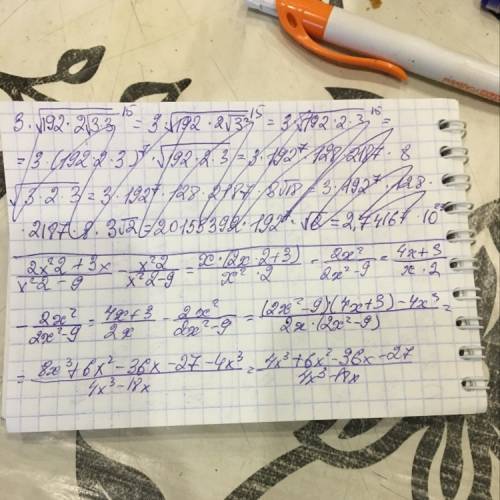 3·√192·2√33^15 = 3·√192·2√33^15 = 3·√192·2·3^15 =
= 3·(192·2·3)^7·√192·2·3 = 3·192^7·128·2187·8
√3·2·3 = 3·192^7·128·2187·8√18 = 3·192^7·128·
·2187·8·3√2 = 20155392·192^7·√2 = 2,74167·10
(2x²2+3x)/(x²2-9) - (x²2)/(x²2-9) = (x·(2x·2+3))/(x²·2) - (2x²)/(2x²-9) = (4x+3)/(x·2)
- (2x²)/(2x²-9) = (4x+3)/(2x) - (2x²)/(2x²-9) = ((2x²-9)(4x+3)-4x³)/(2x·(2x²-9)) =
= (8x³+6x²-36x-27-4x³)/(4x³-18x) = (4x³+6x²-36x-27)/(4x³-18x)